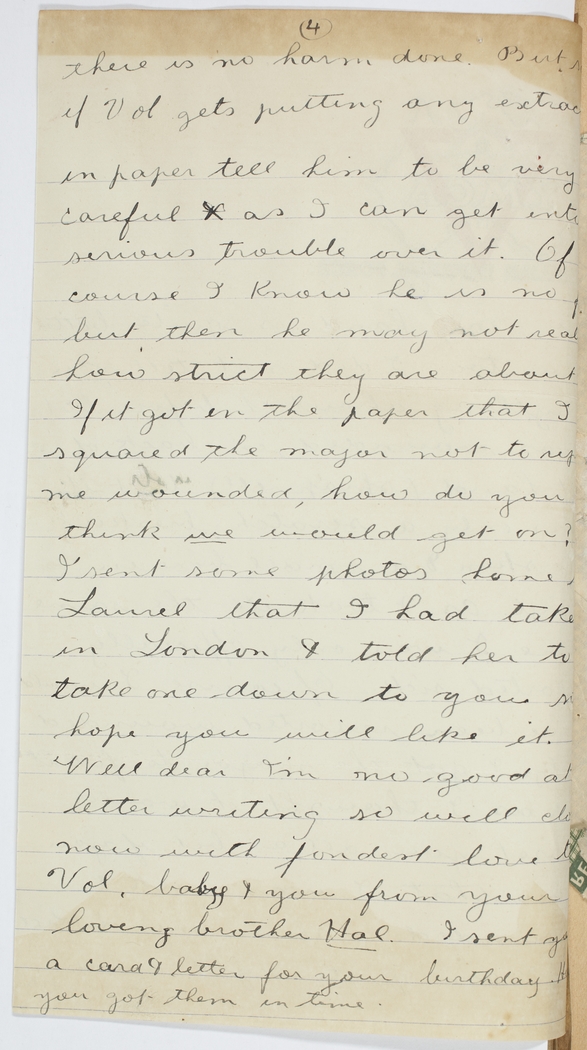 (4)
there is no harm done. But
if Vol gets putting any extrac
in paper tell him to be very
careful as I can get into
serious trouble over it. Of
course I know he is no
but then he may not real
how strict they are about
If it got in the paper that I
squared the major not to rep
me wounded, how do you
think we would get on?
I sent some photos home
Laurel that I had take
in London & told her to
take one down to you
hope you will like it.
Well dear I'm no good at
letter writing so will clo
now with fondest love t
Vol, baby & you from your
loving brother Hal. I sent yo
a card & letter for your birthday. H
you got them in time.